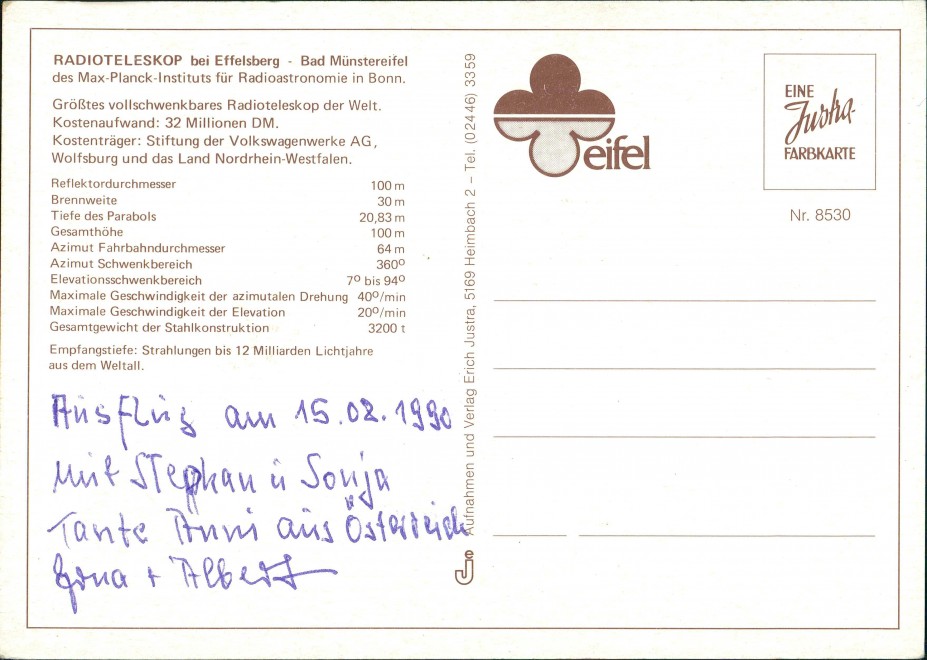 RADIOTELESKOP bei Effelsberg - Bad Münstereifel
des Max-Planck-Instituts für Radioastronomie in Bonn.
Größtes vollschwenkbares Radioteleskop der Welt.
Kostenaufwand: 32 Millionen DM.
Kostenträger: Stiftung der Volkswagenwerke AG,
Wolfsburg und das Land Nordrhein-Westfalen.
Reflektordurchmesser 100 m
Brennweite 30 m
Tiefe des Parabols 20,83 m
Gesamthöhe 100 m
Azimut Fahrbahndurchmesser 64 m
Azimut Schwenkbereich 360º
Elevationsschwenkbereich 7º bis 94º
Maximale Geschwindigkeit der azimutalen Drehung 40º/min
Maximale Geschwindigkeit der Elevation 20º/min
Gesamtgewicht der Stahlkonstruktion 3200 t
Empfangstiefe: Strahlungen bis 12 Milliarden Lichtjahre
aus dem Weltall.
Ausflug am 15.02.1990
mit Stephan u Sonja
Tante Anni aus Österreich
Erna + Albert
Je Aufnahmen und Verlag Erich Justra, 5169 Heimbach 2 – Tel. (02446) 3359
eifel
EINE
Justra-
FARBKARTE
Nr. 8530